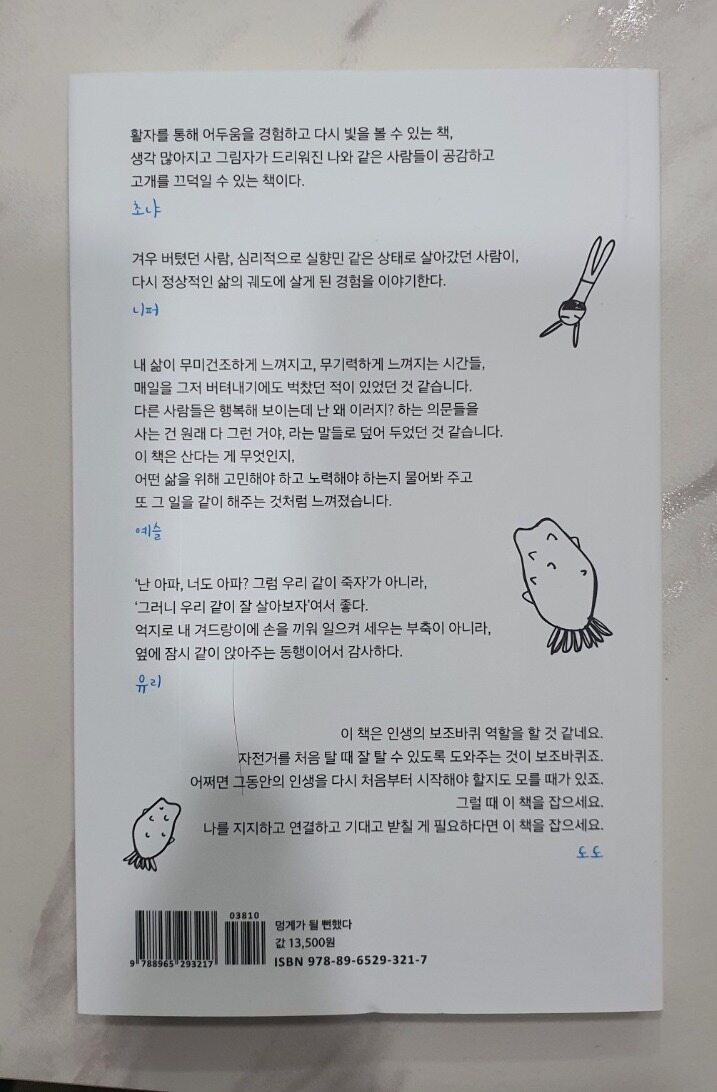 활자를 통해 어두움을 경험하고 다시 빛을 볼 수 있는 책,
생각 많아지고 그림자가 드리워진 나와 같은 사람들이 공감하고
고개를 끄덕일 수 있는 책이다.
초냐
겨우 버텼던 사람, 심리적으로 실향민 같은 상태로 살아갔던 사람이,
다시 정상적인 삶의 궤도에 살게 된 경험을 이야기한다.
니퍼
내 삶이 무미건조하게 느껴지고, 무기력하게 느껴지는 시간들,
매일을 그저 버텨내기에도 벅찼던 적이 있었던 것 같습니다.
다른 사람들은 행복해 보이는데 난 왜 이러지? 하는 의문들을
사는 건 원래 다 그런 거야, 라는 말들로 덮어 두었던 것 같습니다.
이 책은 산다는 게 무엇인지,
어떤 삶을 위해 고민해야 하고 노력해야 하는지 물어봐 주고
또 그 일을 같이 해주는 것처럼 느껴졌습니다.
예슬
‘난 아파, 너도 아파? 그럼 우리 같이 죽자’가 아니라,
‘그러니 우리 같이 잘 살아보자’여서 좋다.
억지로 내 겨드랑이에 손을 끼워 일으켜 세우는 부축이 아니라,
옆에 잠시 같이 앉아주는 동행이어서 감사하다.
유리
이 책은 인생의 보조바퀴 역할을 할 것 같네요.
자전거를 처음 탈 때 잘 탈 수 있도록 도와주는 것이 보조바퀴죠.
어쩌면 그동안의 인생을 다시 처음부터 시작해야 할지도 모를 때가 있죠.
그럴 때 이 책을 잡으세요.
나를 지지하고 연결하고 기대고 받칠 게 필요하다면 이 책을 잡으세요.
도도
03810
멍게가 될 뻔했다
값 13,500원
ISBN 978-89-6529-321-7
9 788965 293217